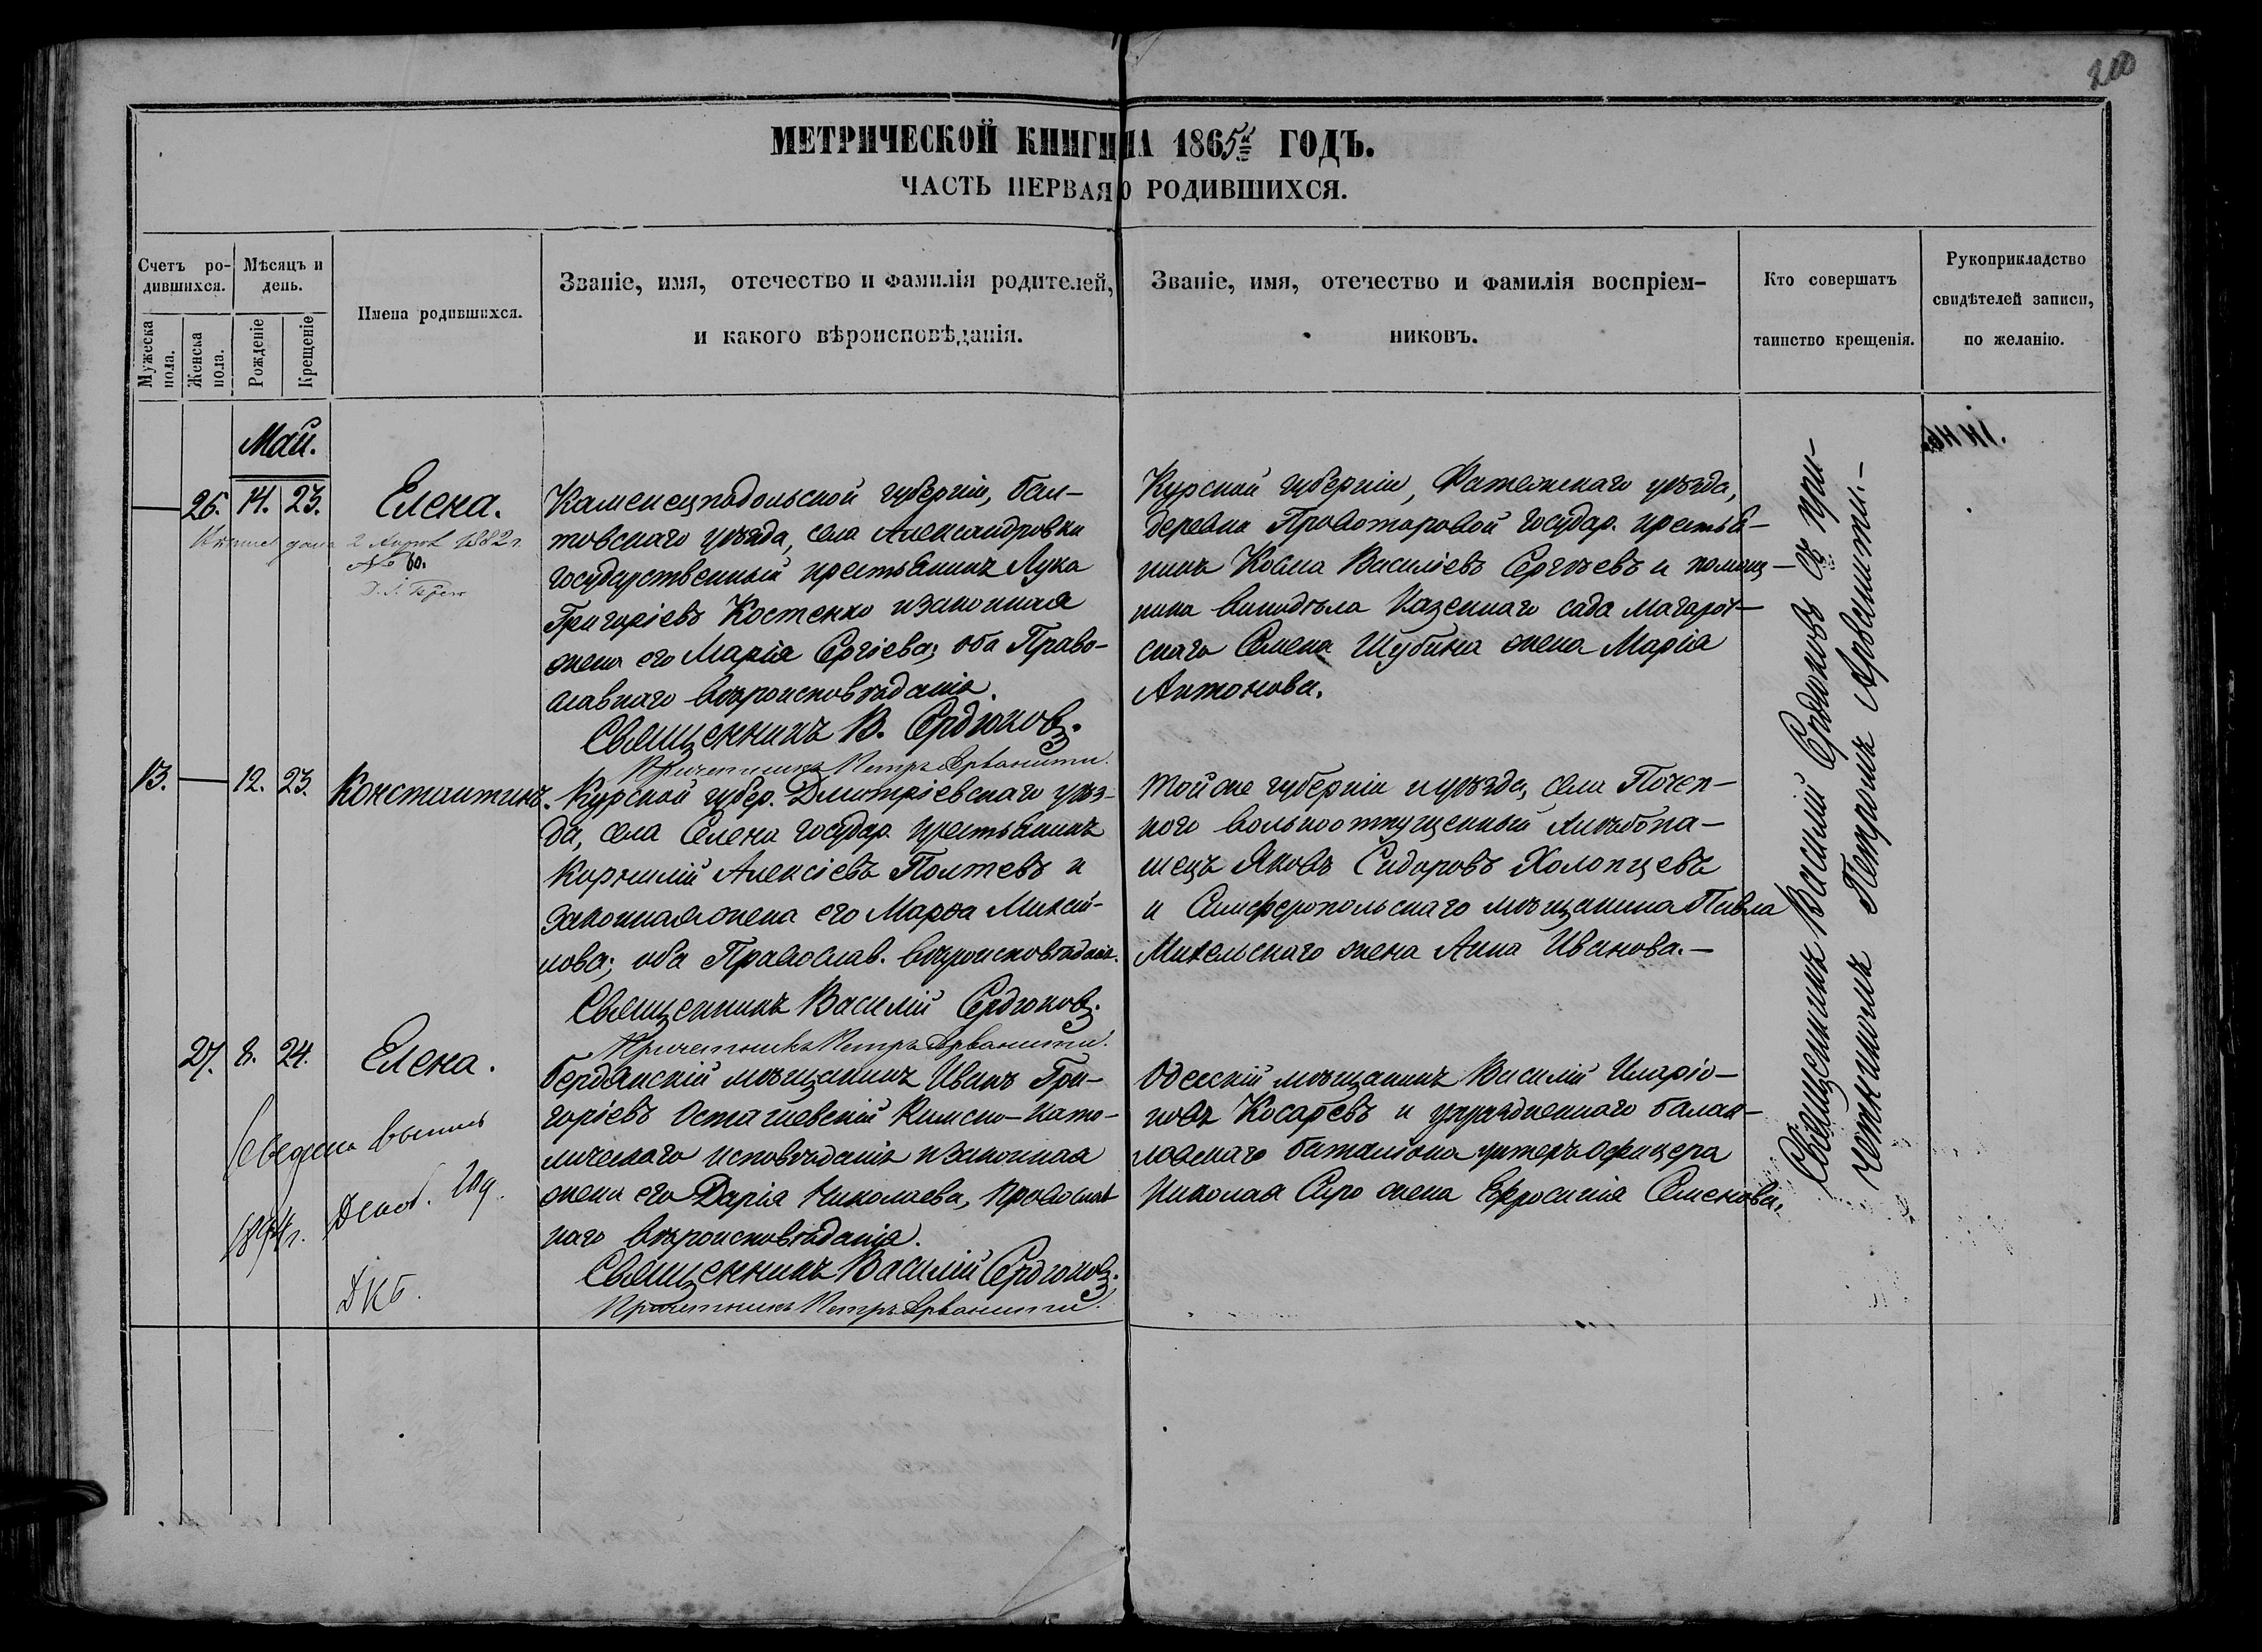 200
МЕТРИЧЕСКОЙ КНИГИ НА 1865й ГОДЪ.
ЧАСТЬ ПЕРВАЯ О РОДИВШИХСЯ.
Счетъ ро-
дившихся.
Мужеска
пола.
Женска
пола.
Мѣсяцъ и
день.
Рожденіе
Крещеніе
Имена родившихся.
Званіе, имя, отечество и фамилія родителей,
и какого вѣроисповѣданія.
Званіе, имя, отечество и фамилія воспріем-
никовъ.
Кто совершатъ
таинство крещенія.
Рукоприкладство
свидѣтелей записи,
по желанію.
Май.
26. 14. 23. Елена.
2 Апрѣл 1882 г.
№ 60.
Каменецподольской губерніи, Бал-
товскаго уѣзда, села Александровки
государственный крестьянинъ Лука
Григоріевъ Костенко и законная
жена его Марія Сергіева; оба Право-
славнаго вѣроисповѣданія.
Священникъ В. Сердюковъ.
Причетникъ Петръ Арванити.
Курской губерніи, Фатежскаго уѣзда,
деревни Проваторовой государ. крестья-
нинъ Косма Василіевъ Сергѣевъ и помощ-
ника винодѣла Казеннаго сада Магарат-
скаго Семена Шубина жена Марія
Антонова.
13. 12. 23. Константинъ.
Курской губер. Дмитріевскаго уѣз-
да, села Селена государ. крестьянинъ
Корнилій Алексіевъ Полтевъ и
законная жена его Марѳа Максі-
мова; оба Православ. вѣроисповѣданія.
Священникъ Василій Сердюковъ.
Причетникъ Петръ Арванити.
Той же губерніи и уѣзда, села Почеп-
ного вольноотпущенный хлѣбопа-
шецъ Яковъ Сидоровъ Холопцевъ
и Симферопольскаго мѣщанина Павла
Микельскаго жена Анна Иванова.—
27. 8. 24. Елена.
выпись
Декаб. 10 д.
ДКБ.
Бердянскій мѣщанинъ Иванъ Гри-
горіевъ Осташевскій Римско-Като-
лическаго исповѣданія и законная
жена его Дарія Николаева, Православ
наго вѣроисповѣданія.
Священникъ Василій Сердюковъ.
Причетникъ Петръ Арванити.
Одесскій мѣщанинъ Василій Иларіо-
новъ Косаревъ и упраздненнаго балак-
лавскаго баталіона унтеръ офицера
Николая Сиро жена Евфросинія Семенова.
Священникъ Василій Сердюковъ съ при-
четникомъ Петромъ Арванити.—